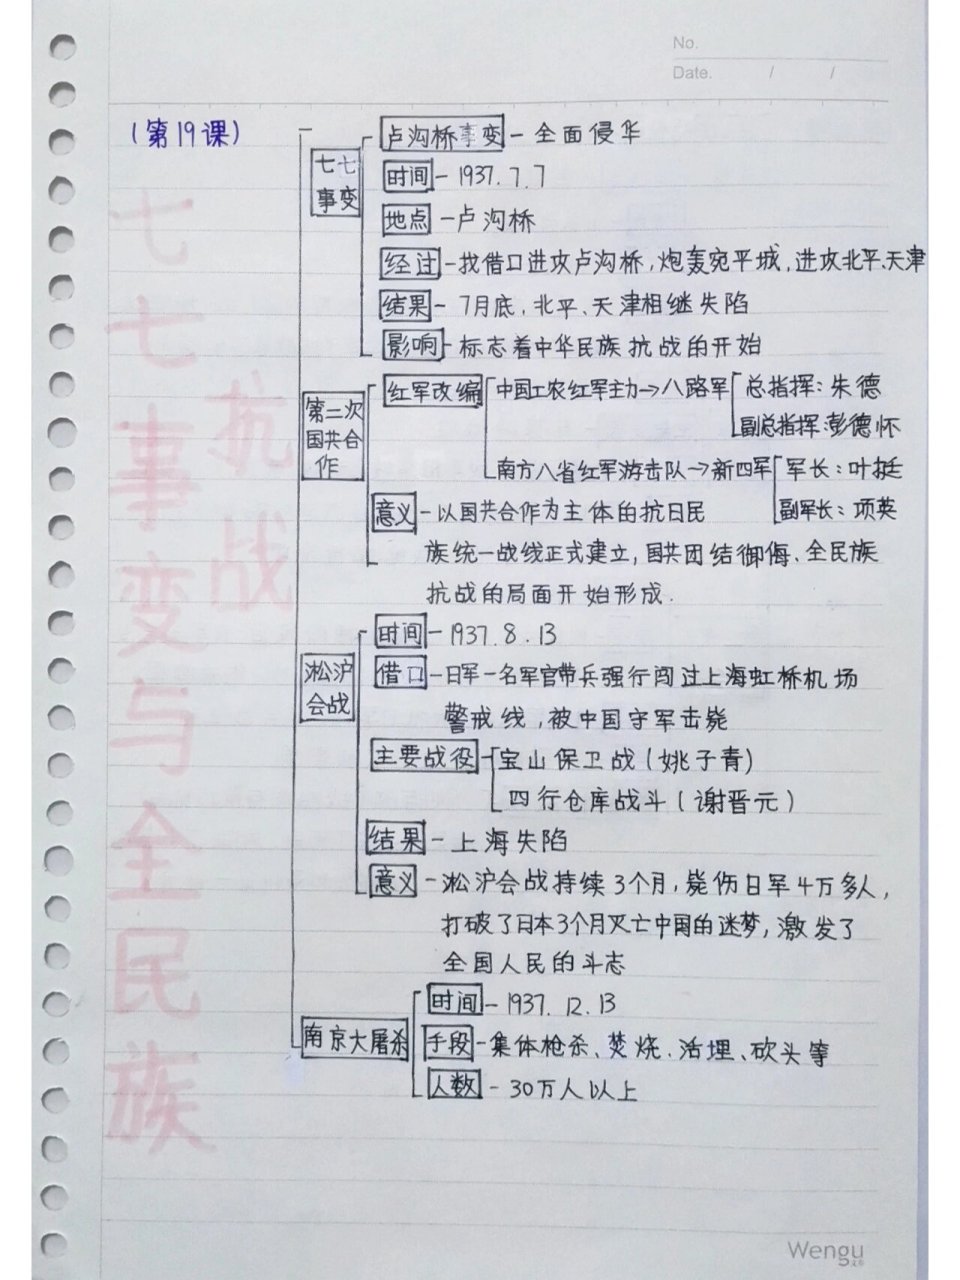 No.
Date. / /
（第19课）
七七事变与全民族
抗战
七七
事变
卢沟桥事变－全面侵华
时间－1937.7.7
地点－卢沟桥
经过－找借口进攻卢沟桥，炮轰宛平城，进攻北平、天津
结果－7月底，北平、天津相继失陷
影响－标志着中华民族抗战的开始
第二次
国共合
作
红军改编 中国工农红军主力→八路军 总指挥：朱德
副总指挥：彭德怀
南方八省红军游击队→新四军 军长：叶挺
副军长：项英
意义－以国共合作为主体的抗日民
族统一战线正式建立，国共团结御侮、全民族
抗战的局面开始形成.
淞沪
会战
时间－1937.8.13
借口－日军一名军官带兵强行闯过上海虹桥机场
警戒线，被中国守军击毙
主要战役 宝山保卫战（姚子青）
四行仓库战斗（谢晋元）
结果－上海失陷
意义－淞沪会战持续3个月，毙伤日军4万多人，
打破了日本3个月灭亡中国的迷梦，激发了
全国人民的斗志
南京大屠杀
时间－1937.12.13
手段－集体枪杀、焚烧、活埋、砍头等
人数－30万人以上
Wengu